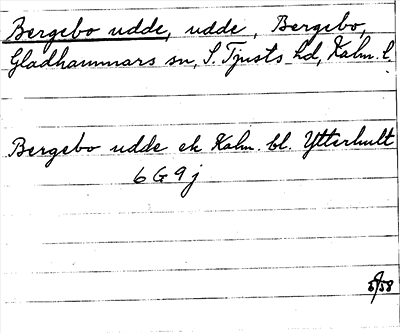 Bergebo udde, udde, Bergebo,
Gladhammars sn, S. Tjusts hd, Kalm. l.
Bergebo udde ek Kalm. bl. Ytterhult
6 G 9 j